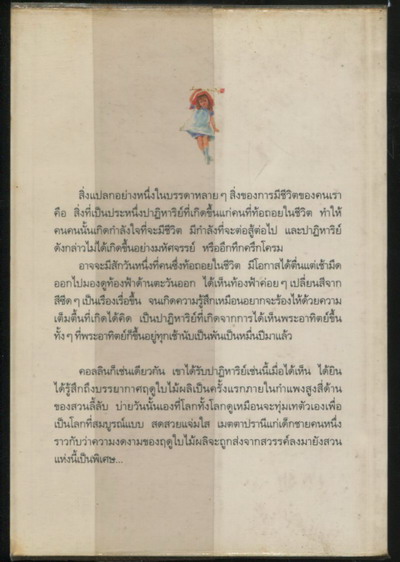 สิ่งแปลกอย่างหนึ่งในบรรดาหลาย ๆ สิ่งของการมีชีวิตของคนเรา
คือ สิ่งที่เป็นประหนึ่งปาฏิหาริย์ที่เกิดขึ้นแก่คนที่ท้อถอยในชีวิต ทำให้
คนคนนั้นเกิดกำลังใจที่จะมีชีวิต มีกำลังที่จะต่อสู้ต่อไป และปาฏิหาริย์
ดังกล่าวไม่ได้เกิดขึ้นอย่างมหัศจรรย์ หรืออึกทึกครึกโครม
อาจจะมีสักวันหนึ่งที่คนซึ่งท้อถอยในชีวิต มีโอกาสได้ตื่นแต่เช้ามืด
ออกไปมองดูท้องฟ้าด้านตะวันออก ได้เห็นท้องฟ้าค่อย ๆ เปลี่ยนสีจาก
สีซีด ๆ เป็นเรื่อเรื่อขึ้น จนเกิดความรู้สึกเหมือนอยากจะร้องไห้ด้วยความ
เต็มตื้นที่เกิดได้คิด เป็นปาฏิหาริย์ที่เกิดจากการได้เห็นพระอาทิตย์ขึ้น
ทั้ง ๆ ที่พระอาทิตย์ก็ขึ้นอยู่ทุกเช้านับเป็นพันเป็นหมื่นปีมาแล้ว
คอลลินก็เช่นเดียวกัน เขาได้รับปาฏิหาริย์เช่นนี้เมื่อได้เห็น ได้ยิน
ได้รู้สึกถึงบรรยากาศฤดูใบไม้ผลิเป็นครั้งแรกภายในกำแพงสูงสี่ด้าน
ของสวนลี้ลับ บ่ายวันนั้นเองที่โลกทั้งโลกดูเหมือนจะทุ่มเทตัวเองเพื่อ
เป็นโลกที่สมบูรณ์แบบ สดสวยแจ่มใส เมตตาปรานีแก่เด็กชายคนหนึ่ง
ราวกับว่าความงดงามของฤดูใบไม้ผลิจะถูกส่งจากสวรรค์ลงมายังสวน
แห่งนี้เป็นพิเศษ...